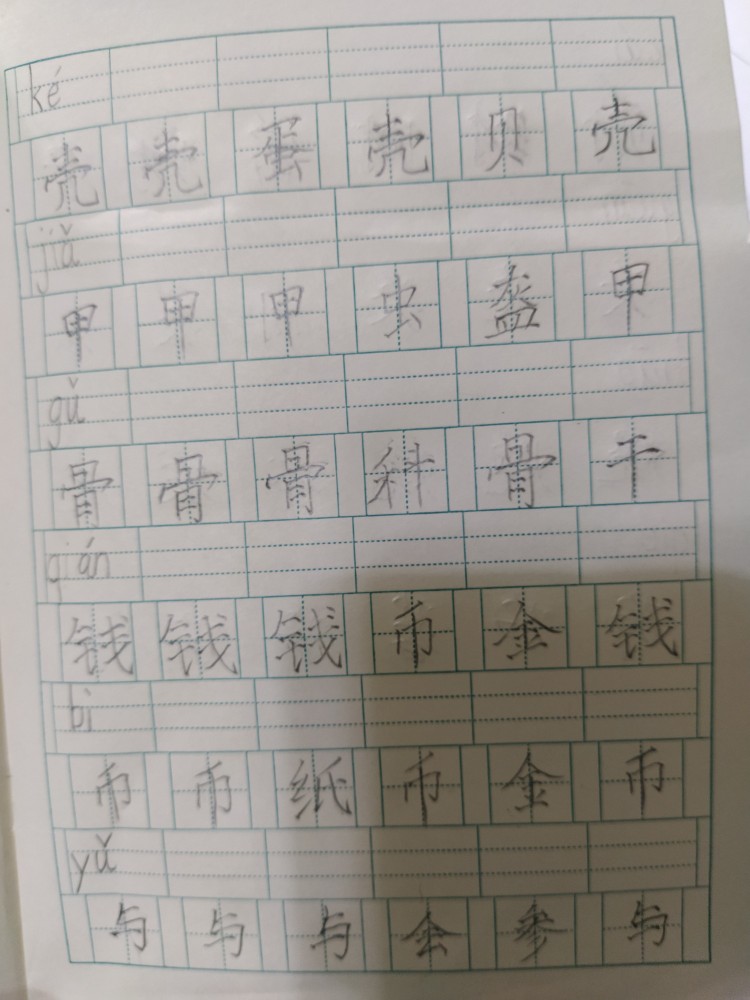 ké
壳 壳 蛋 壳 贝 壳
jiǎ
甲 甲 甲 虫 盔 甲
gǔ
骨 骨 骨 科 骨 干
qián
钱 钱 钱 币 金 钱
bì
币 币 纸 币 金 币
yǔ
与 与 与 会 参 与